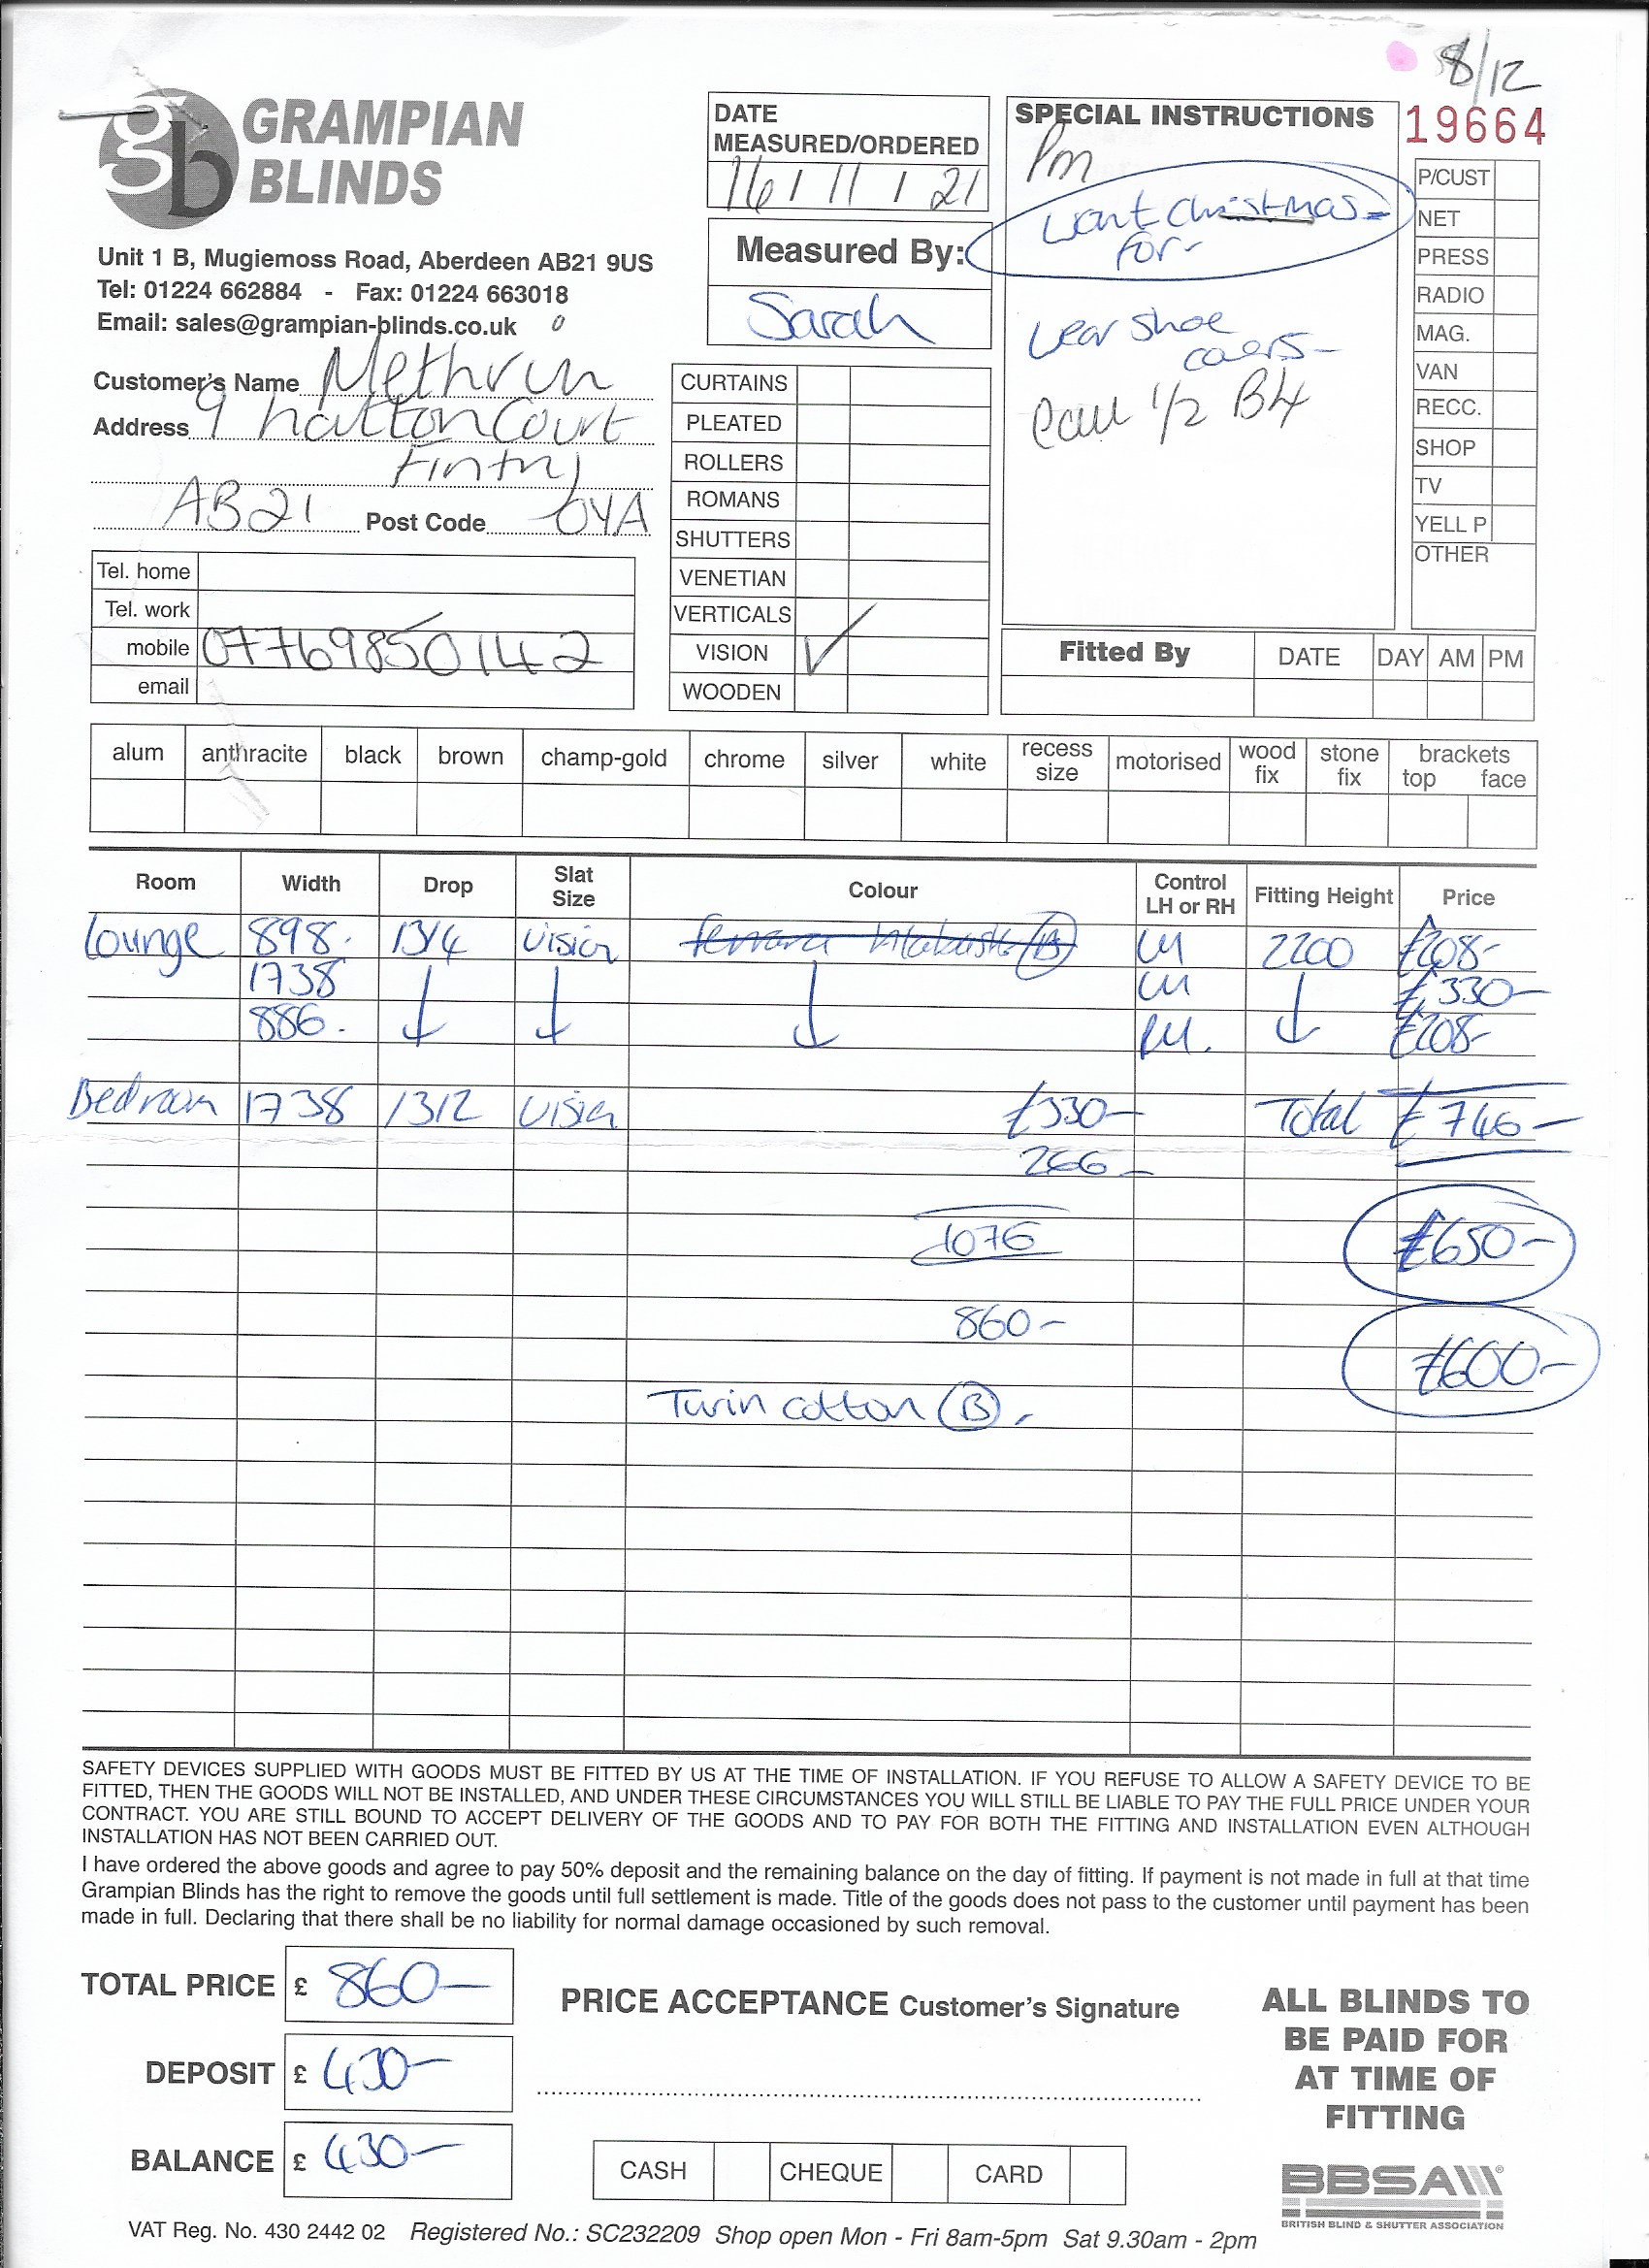 8/12
gb GRAMPIAN BLINDS
19664
Unit 1 B, Mugiemoss Road, Aberdeen AB21 9US
Tel: 01224 662884 - Fax: 01224 663018
Email: sales@grampian-blinds.co.uk
Customer's Name
Address 9 hatton Court
Fintry
AB21 Post Code 0YA
Tel. home
Tel. work
mobile 07769850142
email
DATE
MEASURED/ORDERED
16 / 11 / 21
Measured By:
Sarah
CURTAINS
PLEATED
ROLLERS
ROMANS
SHUTTERS
VENETIAN
VERTICALS
VISION ✓
WOODEN
SPECIAL INSTRUCTIONS
Pm
want Christmas -
for -
wear shoe
covers -
Call 1/2 B4
P/CUST
NET
PRESS
RADIO
MAG.
VAN
RECC.
SHOP
TV
YELL P
OTHER
Fitted By DATE DAY AM PM
alum anthracite black brown champ-gold chrome silver white recess size motorised wood fix stone fix brackets top face
Room Width Drop Slat Size Colour Control LH or RH Fitting Height Price
Lounge 898. 1314 Vision LH 2200 £208-
1738 LH £330-
886. RH. £208-
Bedroom 1738 1312 Vision £330- Total £746-
266-
1076 £650-
860- £600-
Twin cotton (B).
SAFETY DEVICES SUPPLIED WITH GOODS MUST BE FITTED BY US AT THE TIME OF INSTALLATION. IF YOU REFUSE TO ALLOW A SAFETY DEVICE TO BE
FITTED, THEN THE GOODS WILL NOT BE INSTALLED, AND UNDER THESE CIRCUMSTANCES YOU WILL STILL BE LIABLE TO PAY THE FULL PRICE UNDER YOUR
CONTRACT. YOU ARE STILL BOUND TO ACCEPT DELIVERY OF THE GOODS AND TO PAY FOR BOTH THE FITTING AND INSTALLATION EVEN ALTHOUGH
INSTALLATION HAS NOT BEEN CARRIED OUT.
I have ordered the above goods and agree to pay 50% deposit and the remaining balance on the day of fitting. If payment is not made in full at that time
Grampian Blinds has the right to remove the goods until full settlement is made. Title of the goods does not pass to the customer until payment has been
made in full. Declaring that there shall be no liability for normal damage occasioned by such removal.
TOTAL PRICE £ 860-
DEPOSIT £ 430-
BALANCE £ 430-
PRICE ACCEPTANCE Customer's Signature
CASH CHEQUE CARD
ALL BLINDS TO
BE PAID FOR
AT TIME OF
FITTING
BBSA
BRITISH BLIND & SHUTTER ASSOCIATION
VAT Reg. No. 430 2442 02 Registered No.: SC232209 Shop open Mon - Fri 8am-5pm Sat 9.30am - 2pm